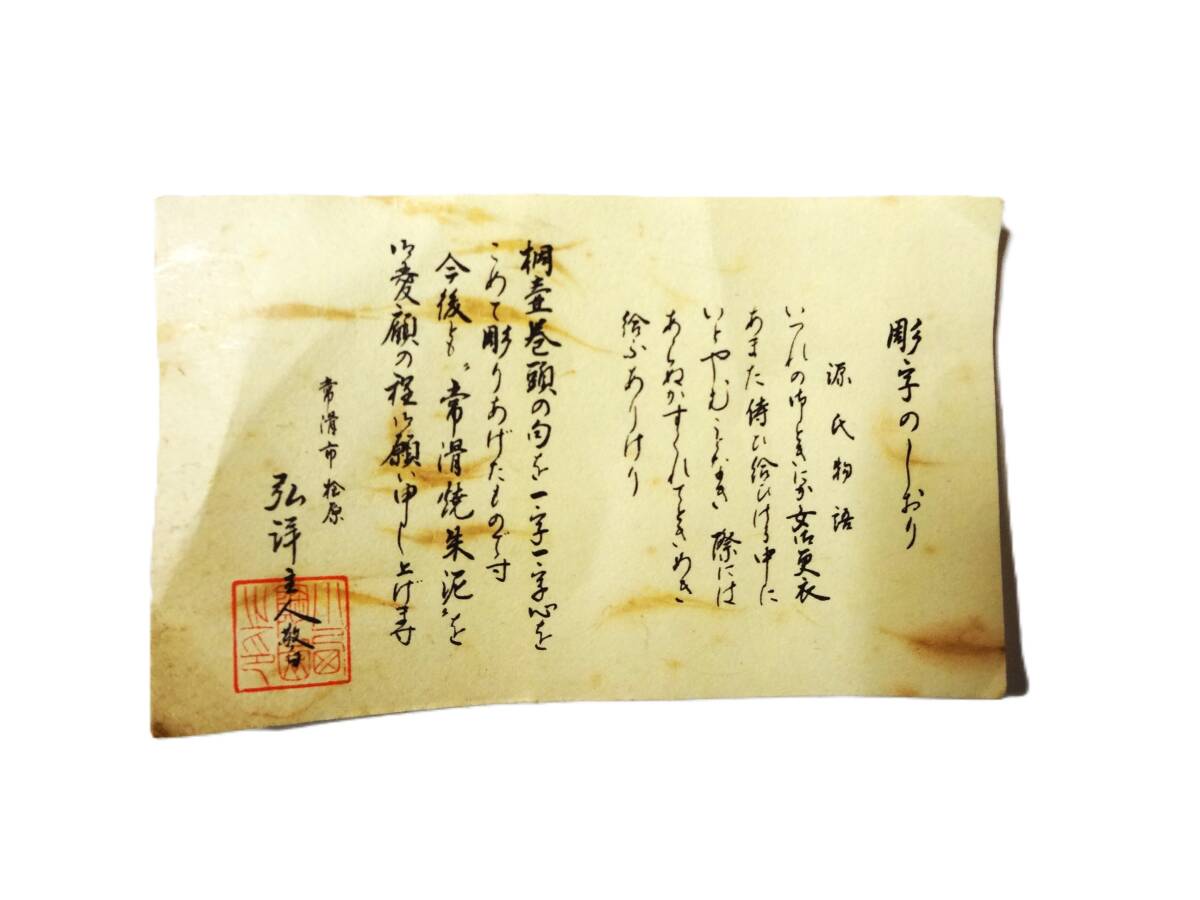 彫字のしおり
源氏物語
いづれの御ときにか女御更衣
あまた侍ひ給ひける中に
いとやむことなき際には
あらぬがすぐれてときめき
給ふありけり
桐壷巻頭の句を一字一字心を
こめて彫りあげたもので寸
今後とも〝常滑焼朱泥〟を
御愛顧の程御願い申し上げます
常滑市松原
弘詳主人敬白